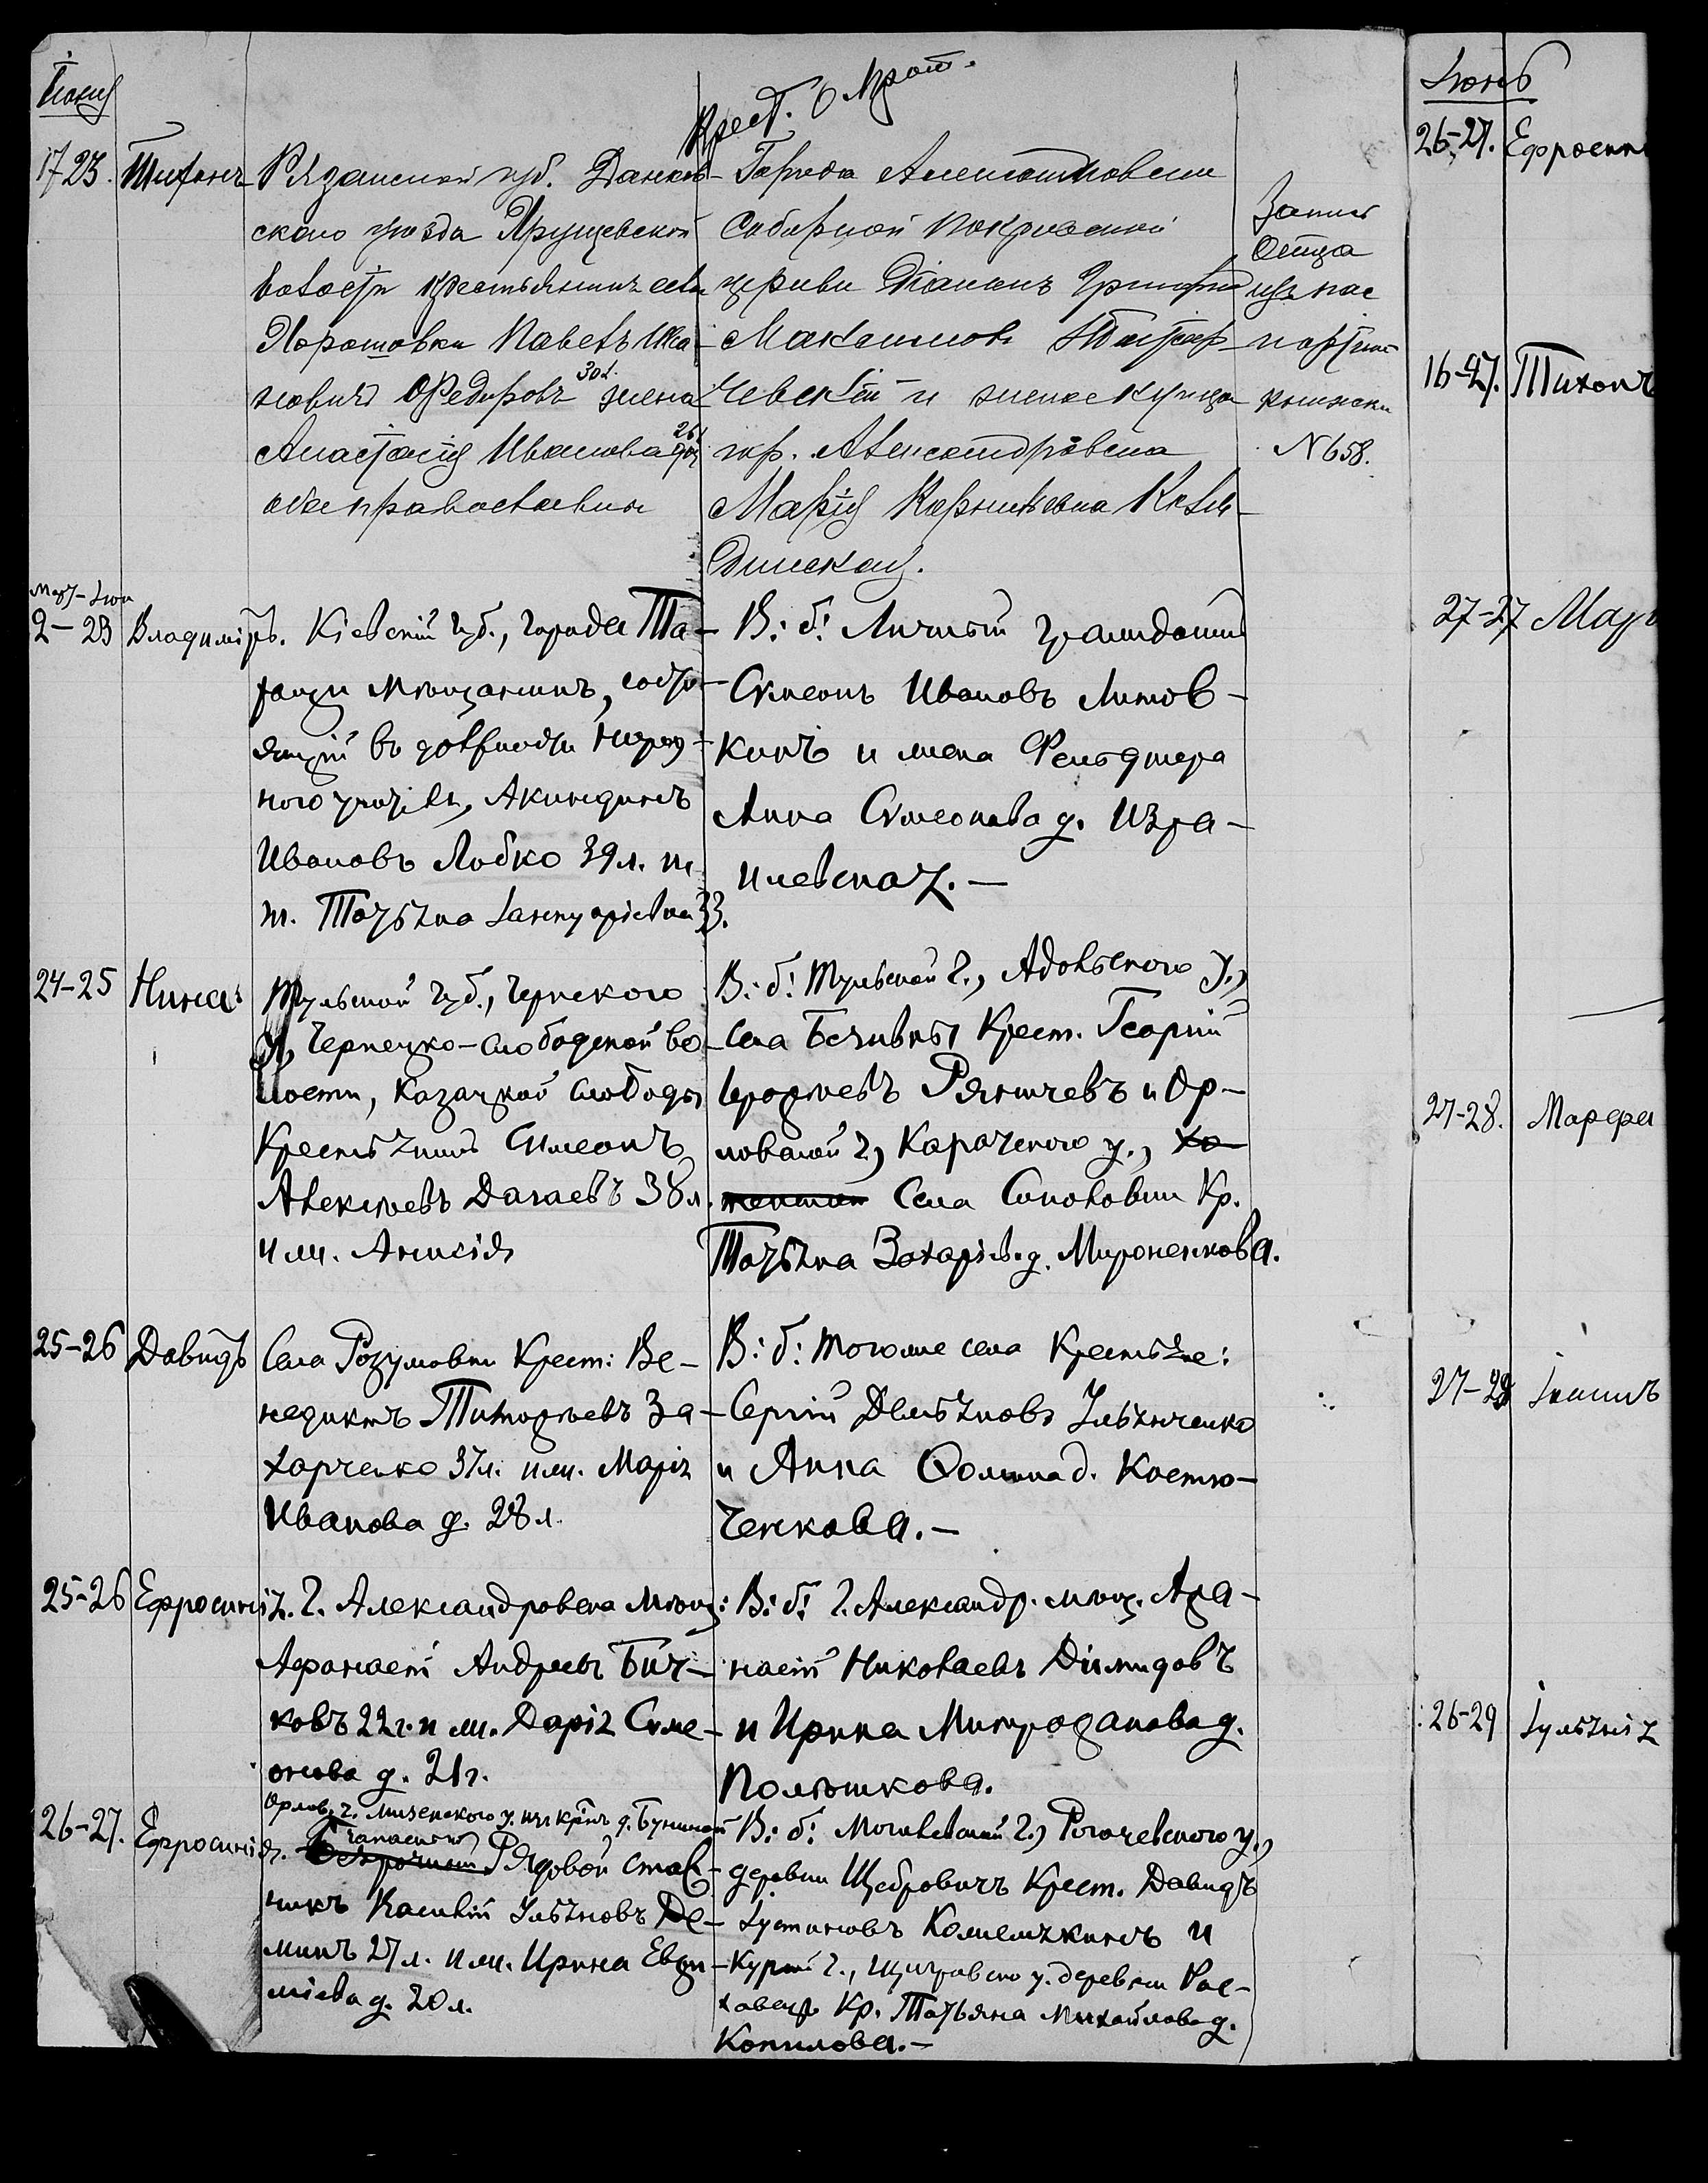 Іюнь
Крест. о. Прот.
17 23. Тихонъ
Рязанской губ. Данков-
скаго уѣзда Хрущевской
волости крестьянинъ села
Хорошовки Павелъ Ива-
новичъ Федоровъ 30 л. жена
Анастасія Иванова 26 л.
оба православныя
Города Александровска
Соборной Покровской
церкви Діаконъ Григорій
Максимовъ
и жена купца
гор. Александровска
Марія Корнильевна
Запись
Отца
изъ пас
порта
N 658.
Март-Іюн
2-23 Владиміръ.
Кіевской губ., города Та-
ращи мѣщанинъ, состо-
ящій въ должности народ-
ного учителя, Акиндинъ
Ивановъ Лобко 39 л. и ж.
Татьяна Іаннуаріевна 33.
В: б: Личный гражданинъ
Симеонъ Ивановъ Литов-
кинъ и жена Фельдшера
Анна Симеонова д. Изра-
илевская.-
24-25 Нина
Тульской губ., Чернского
у, Чернецко-слободской во-
лости, Казачкой слободы
Крестьянинъ Симеонъ
Алексѣевъ Дагаевъ 38 л.
и ж. Анисія
В: б: Тульской г.,
Села Крест. Георгій
Ерофѣевъ и Ор-
ловской г, Карачевского у.,
Села Соколовки Кр.
Татьяна Захаріев. д. Мироненкова.
25-26 Давидъ
Села Розумовки Крест: Ве-
недиктъ Тимофѣевъ За-
харченко 37 л. и ж. Марія
Иванова д. 28 л.
В: б: Тогоже села Крестьяне:
Сергій Демьяновъ Ульянченко
и Анна Фомина д. Костю-
ченкова.-
25-26 Ефросинія.
Г. Александровска мѣщ:
Афанасій Андреевъ Быч-
ковъ 22 г. и ж. Дарія Симе-
онова д. 21 г.
В: б: г. Александр. мѣщ. Афа-
насій Николаевъ Димидовъ
и Ирина Митрофанова д.
Полюшкова.
26-27. Ефросинія.
Орлов. г. Мценского у. изъ кр-нъ д.
запасный Рядовой
Василій Ульяновъ Де-
минъ 27 л. и ж. Ирина Евѳи-
міева д. 20 л.
В: б: Могилевской г., Рогачевского у.,
деревни Щибровичъ Крест. Давидъ
Іустиновъ и
Курск. г., Щигровско у. деревни Рас-
ховецъ Кр. Татьяна Михайлова д.
Копилова.-
Іюнь
26-27. Ефросині
16-27. Тихонъ
27-27
27-28. Марфа
27-28 Іоаннъ
26-29 Іульянія